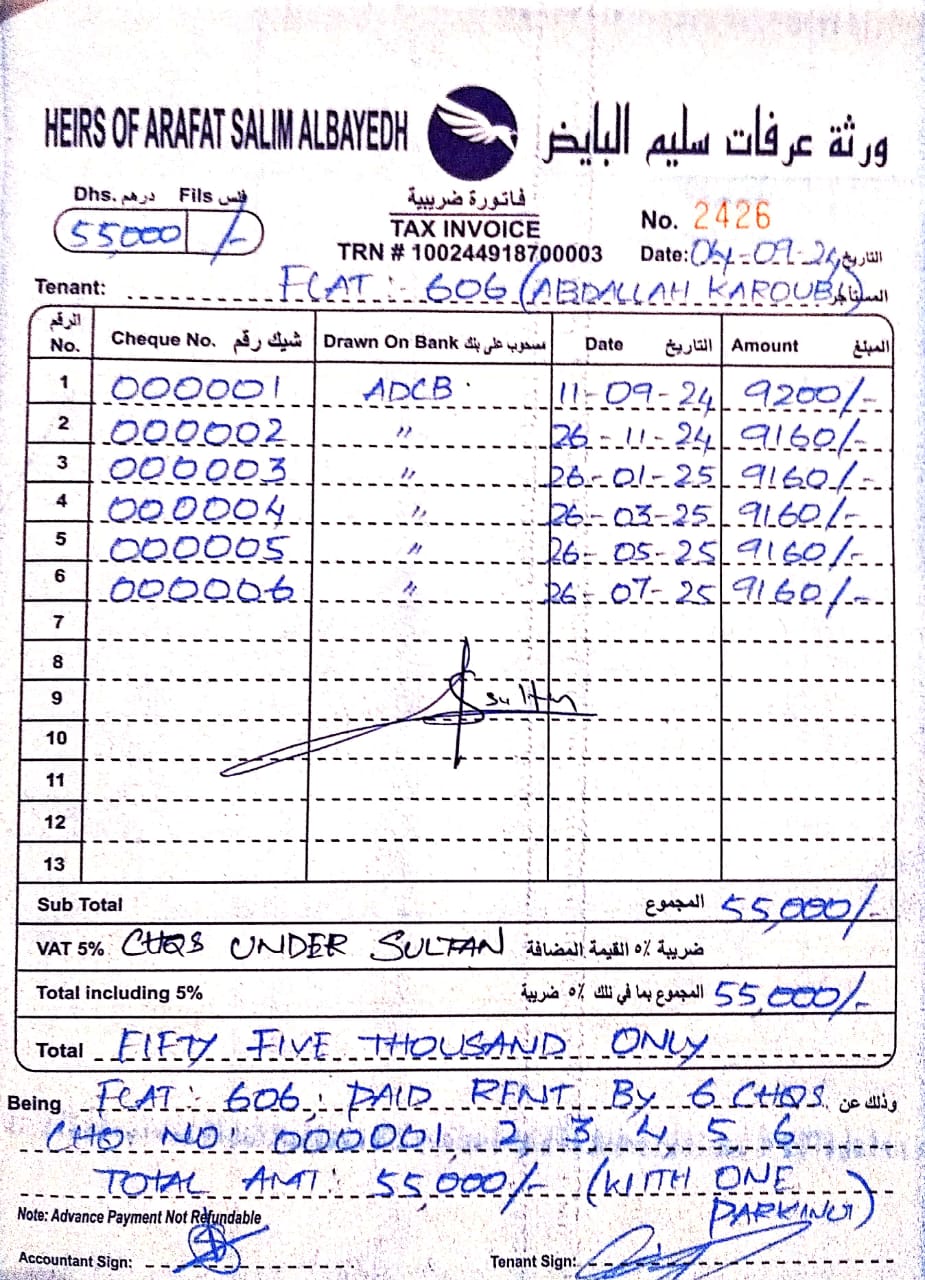 HEIRS OF ARAFAT SALIM ALBAYEDH ورثة عرفات سليم البايض
Dhs. درهم Fils فلس
55000 /-
فاتورة ضريبية
TAX INVOICE
TRN # 100244918700003
No. 2426
Date: 04-09-24 التاريخ
Tenant: FLAT:- 606 (ABDALLAH KAROUB) المستأجر
الرقم No. Cheque No. شيك رقم Drawn On Bank مسحوب على بنك Date التاريخ Amount المبلغ
1 000001 ADCB 11-09-24 9200/-
2 000002 〃 26-11-24 9160/-
3 000003 〃 26-01-25 9160/-
4 000004 〃 26-03-25 9160/-
5 000005 〃 26-05-25 9160/-
6 000006 〃 26-07-25 9160/-
7
8
9 Sultan
10
11
12
13
Sub Total المجموع 55,000/-
VAT 5% CHQS UNDER SULTAN ضريبة ٥٪ القيمة المضافة
Total including 5% المجموع بما في ذلك ٥٪ ضريبة 55,000/-
Total FIFTY FIVE THOUSAND ONLY
Being FLAT: 606, PAID RENT By 6 CHQS وذلك عن
CHQ NO: 000001, 2, 3, 4, 5, 6
TOTAL AMT: 55,000/- (WITH ONE
PARKING)
Note: Advance Payment Not Refundable
Accountant Sign: Tenant Sign: